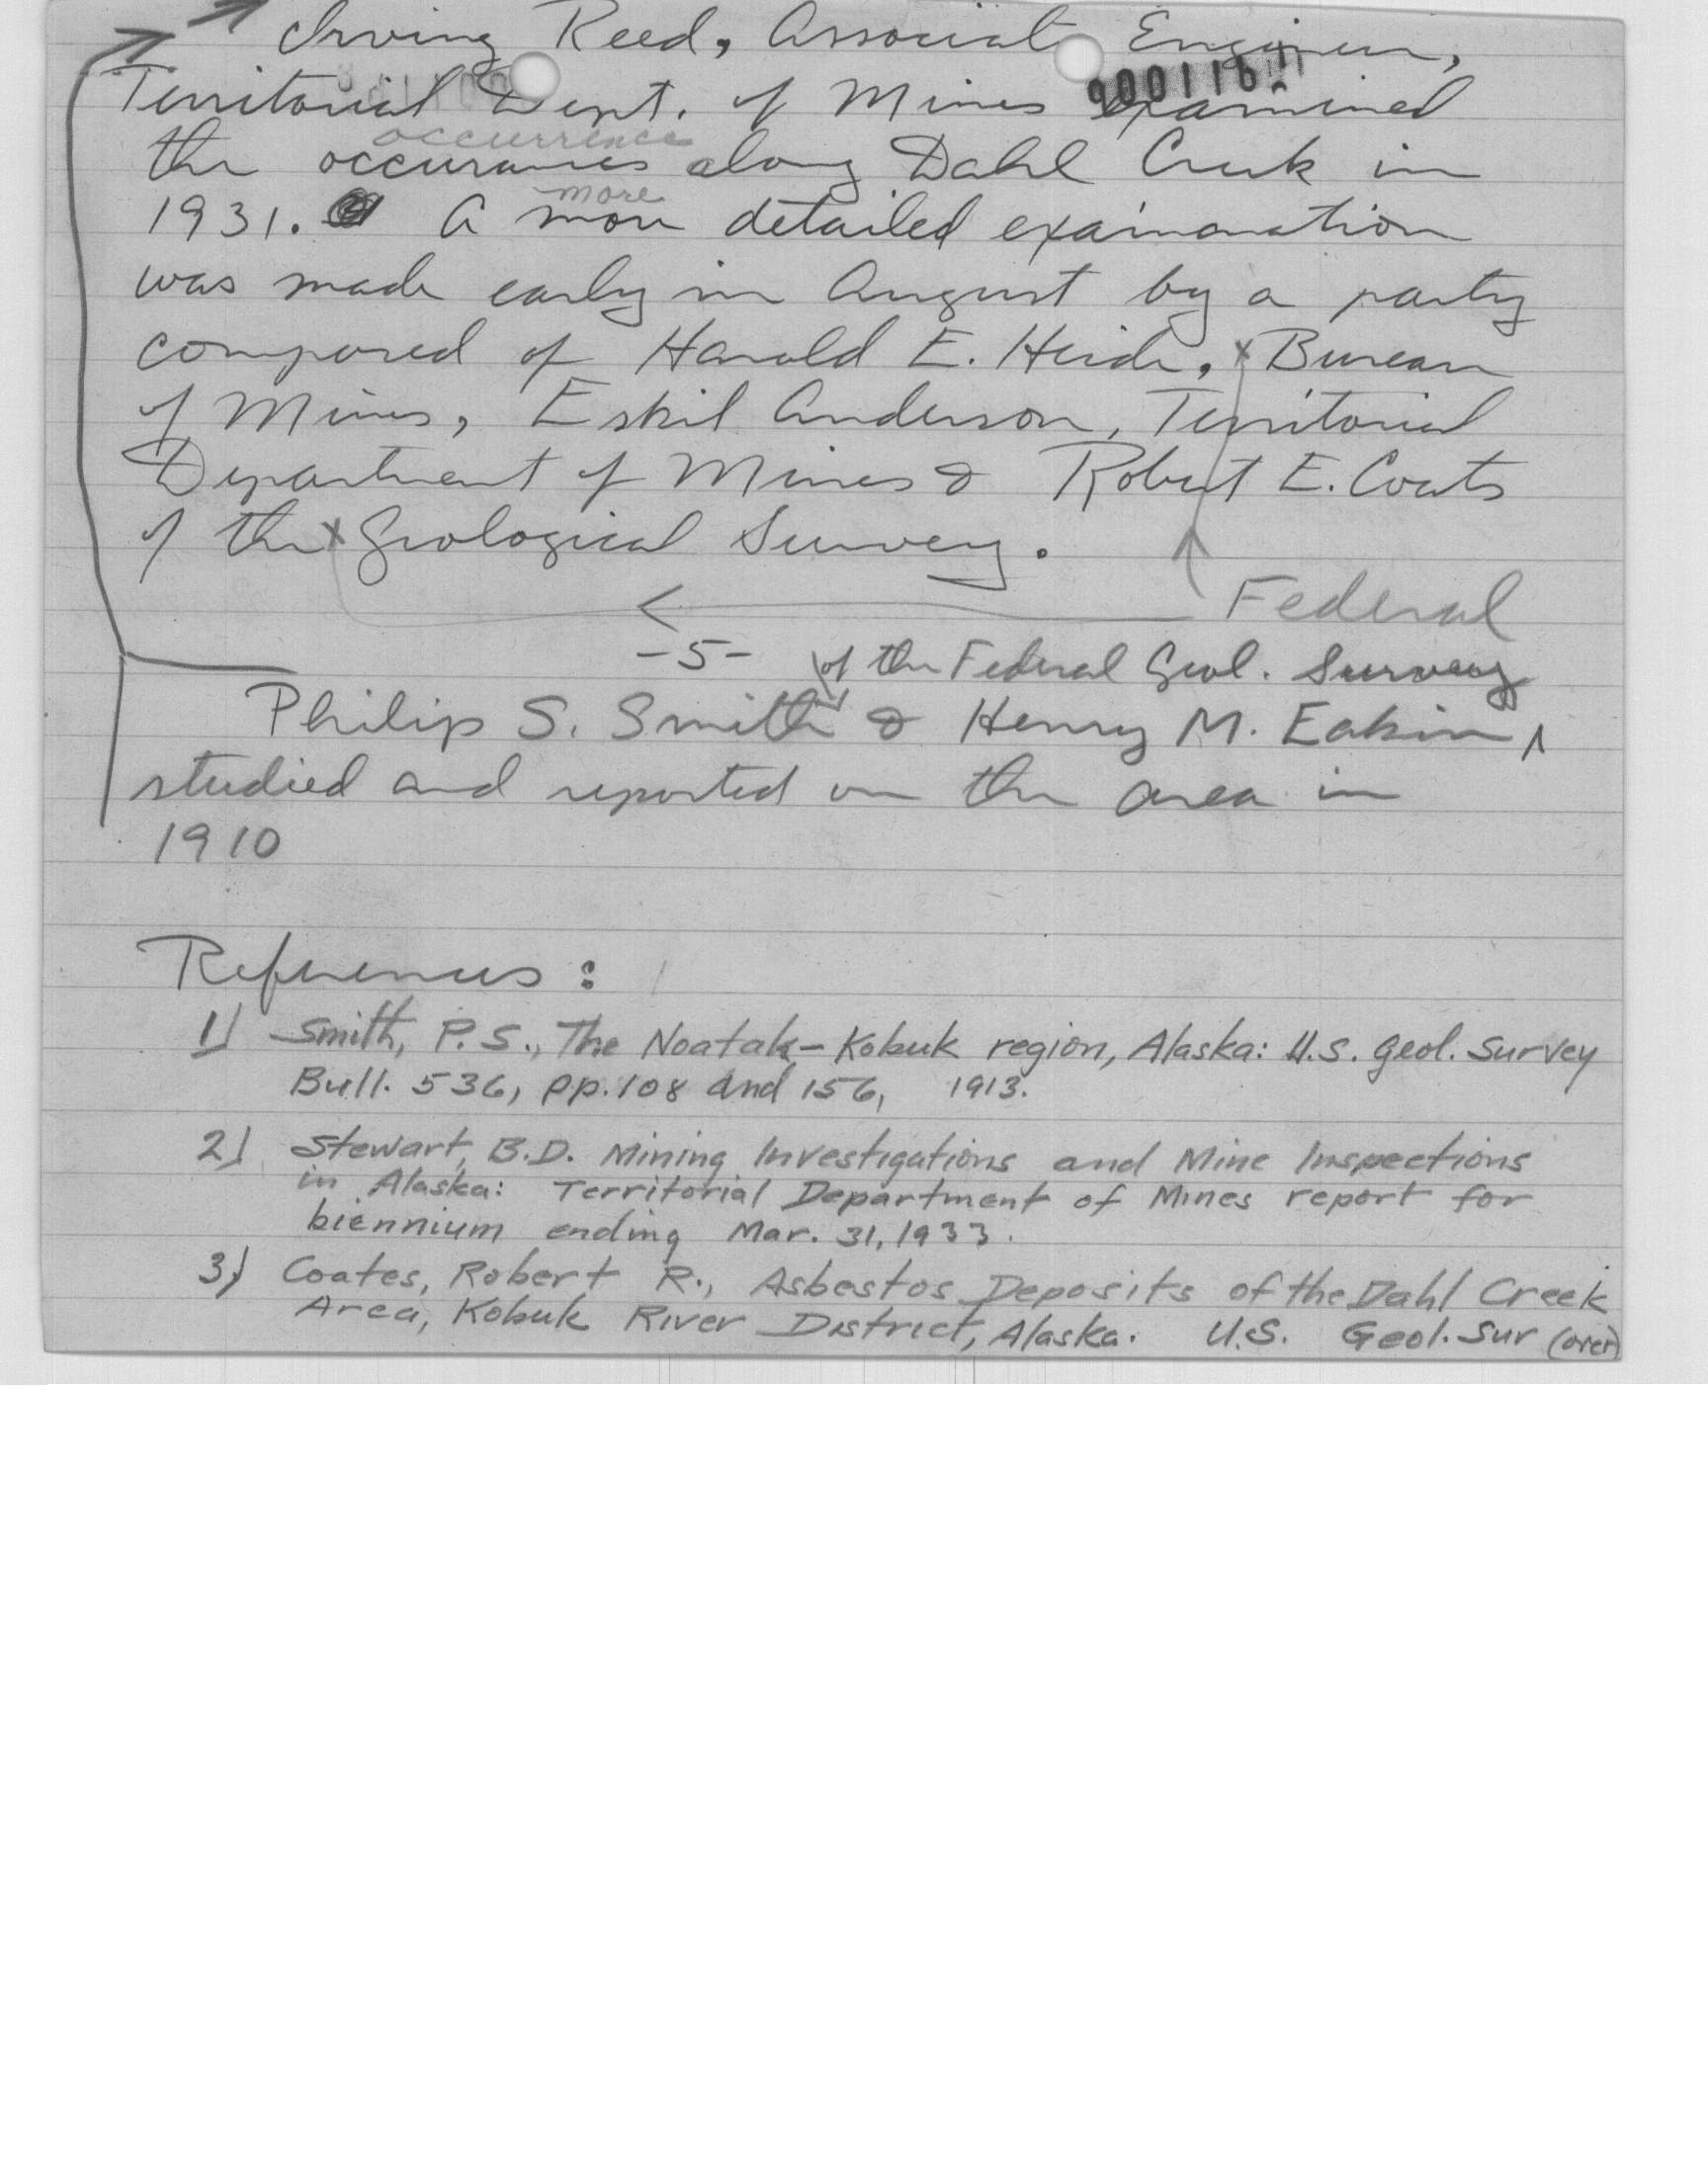 Irving Reed, Associate Engineer,
90011611
Territorial Dept. of Mines examined
occurrence
the occurances along Dahl Creek in
more
1931. A more detailed examanation
was made early in August by a party
composed of Harold E. Heide, x Bureau
of Mines, Eskil Anderson, Territorial
Department of Mines & Robert E. Coats
of the x Geological Survey.
Federal
-5- of the Federal Geol. Survey
Philip S. Smith & Henry M. Eakin,
studied and reported on the area in
1910
References:
1) Smith, P.S., The Noatak-Kobuk region, Alaska: U.S. Geol. Survey
Bull. 536, pp. 108 and 156, 1913.
2) Stewart, B.D. Mining Investigations and Mine Inspections
in Alaska: Territorial Department of Mines report for
biennium ending Mar. 31, 1933.
3) Coates, Robert R., Asbestos Deposits of the Dahl Creek
Area, Kobuk River District, Alaska. U.S. Geol. Sur (over)